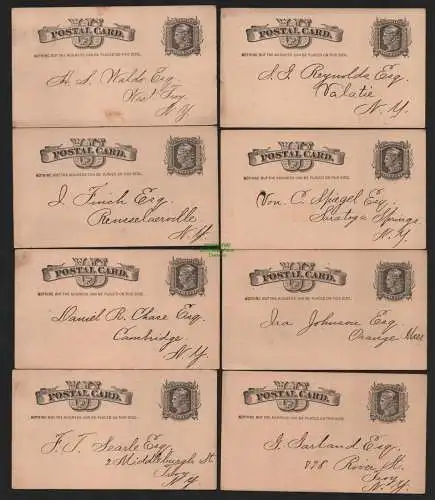 U.S.
POSTAL CARD.
NOTHING BUT THE ADDRESS CAN BE PLACED ON THIS SIDE.
H. S. Waldo Esq.
West Troy
N. Y.
U.S.
POSTAL CARD.
NOTHING BUT THE ADDRESS CAN BE PLACED ON THIS SIDE.
S. I. Reynolds, Esq.
Valatie
N. Y.
U.S.
POSTAL CARD.
NOTHING BUT THE ADDRESS CAN BE PLACED ON THIS SIDE.
J. Finch Esq
Rensselaerville
N. Y.
U.S.
POSTAL CARD.
NOTHING BUT THE ADDRESS CAN BE PLACED ON THIS SIDE.
Von. C. Spiegel Esq
Saratoga Springs
N. Y.
U.S.
POSTAL CARD.
NOTHING BUT THE ADDRESS CAN BE PLACED ON THIS SIDE.
Daniel R. Chase Esq.
Cambridge.
N. Y.
U.S.
POSTAL CARD.
NOTHING BUT THE ADDRESS CAN BE PLACED ON THIS SIDE.
Ira Johnson Esq
Orange Mass
U.S.
POSTAL CARD.
NOTHING BUT THE ADDRESS CAN BE PLACED ON THIS SIDE.
F. T. Searle Esq.
2 Middleburgh St.
Troy
N. Y.
U.S.
POSTAL CARD.
NOTHING BUT THE ADDRESS CAN BE PLACED ON THIS SIDE.
J. Garland Esq.
River St.
Troy
N. Y.